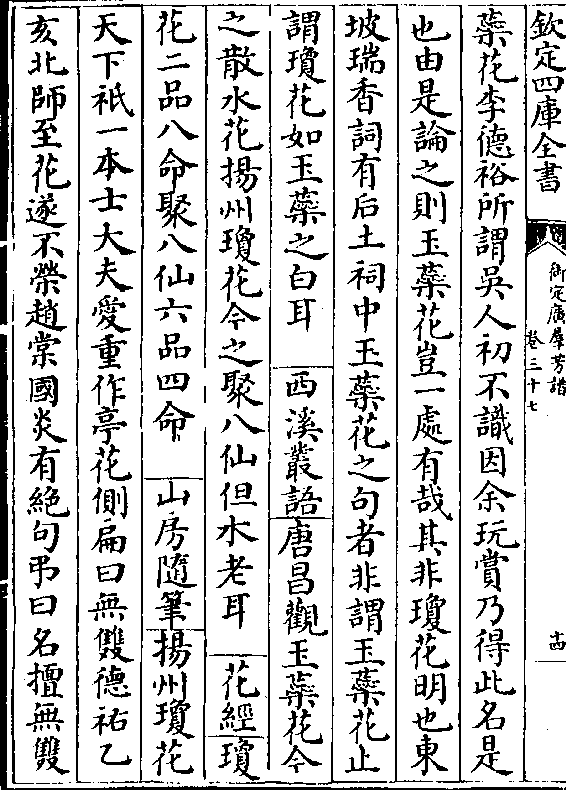 欽定四庫全書
御定廣羣芳譜
卷三十七
十四
蘂花李德裕所謂吳人初不識因余玩賞乃得此名是
也由是論之則玉蘂花豈一處有哉其非瓊花明也東
坡瑞香詞有后土祠中玉蘂花之句者非謂玉蘂花止
謂瓊花如玉蘂之白耳 西溪叢語唐昌觀玉蘂花今
之散水花揚州瓊花今之聚八仙但木老耳 花經瓊
花二品八命聚八仙六品四命 山房隨筆揚州瓊花
天下祇一本士大夫愛重作亭花側扁曰無雙德祐乙
亥北師至花遂不榮趙棠國炎有絶句弔曰名擅無雙